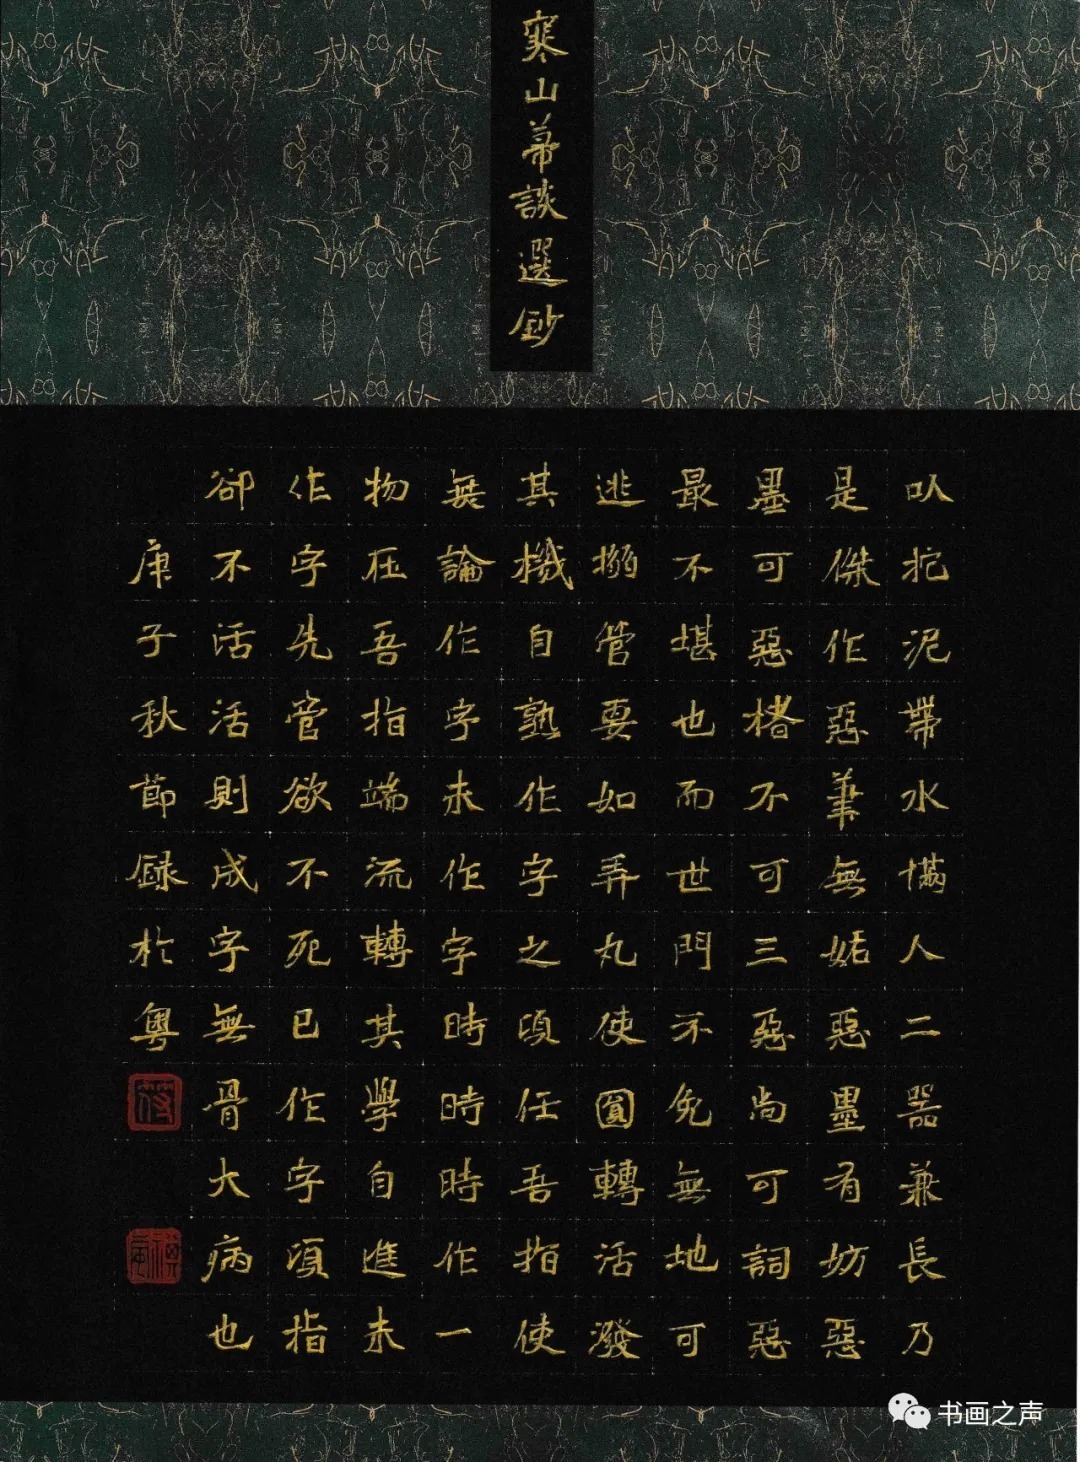 寒山帚談選鈔
以挖泥帶水懣人二器兼長乃
是傑作惡筆無妨惡墨有妨惡
墨可惡楮不可三惡尚可詞惡
最不堪也而世門不免無地可
逃搦管要如弄丸使圓轉活潑
其機自熟作字之頃任吾指使
無論作字未作字時時時作一
物在吾指端流轉其學自進未
作字先管欲不死已作字須指
卻不活活則成字無骨大病也
庚子秋節録於粵
书画之声